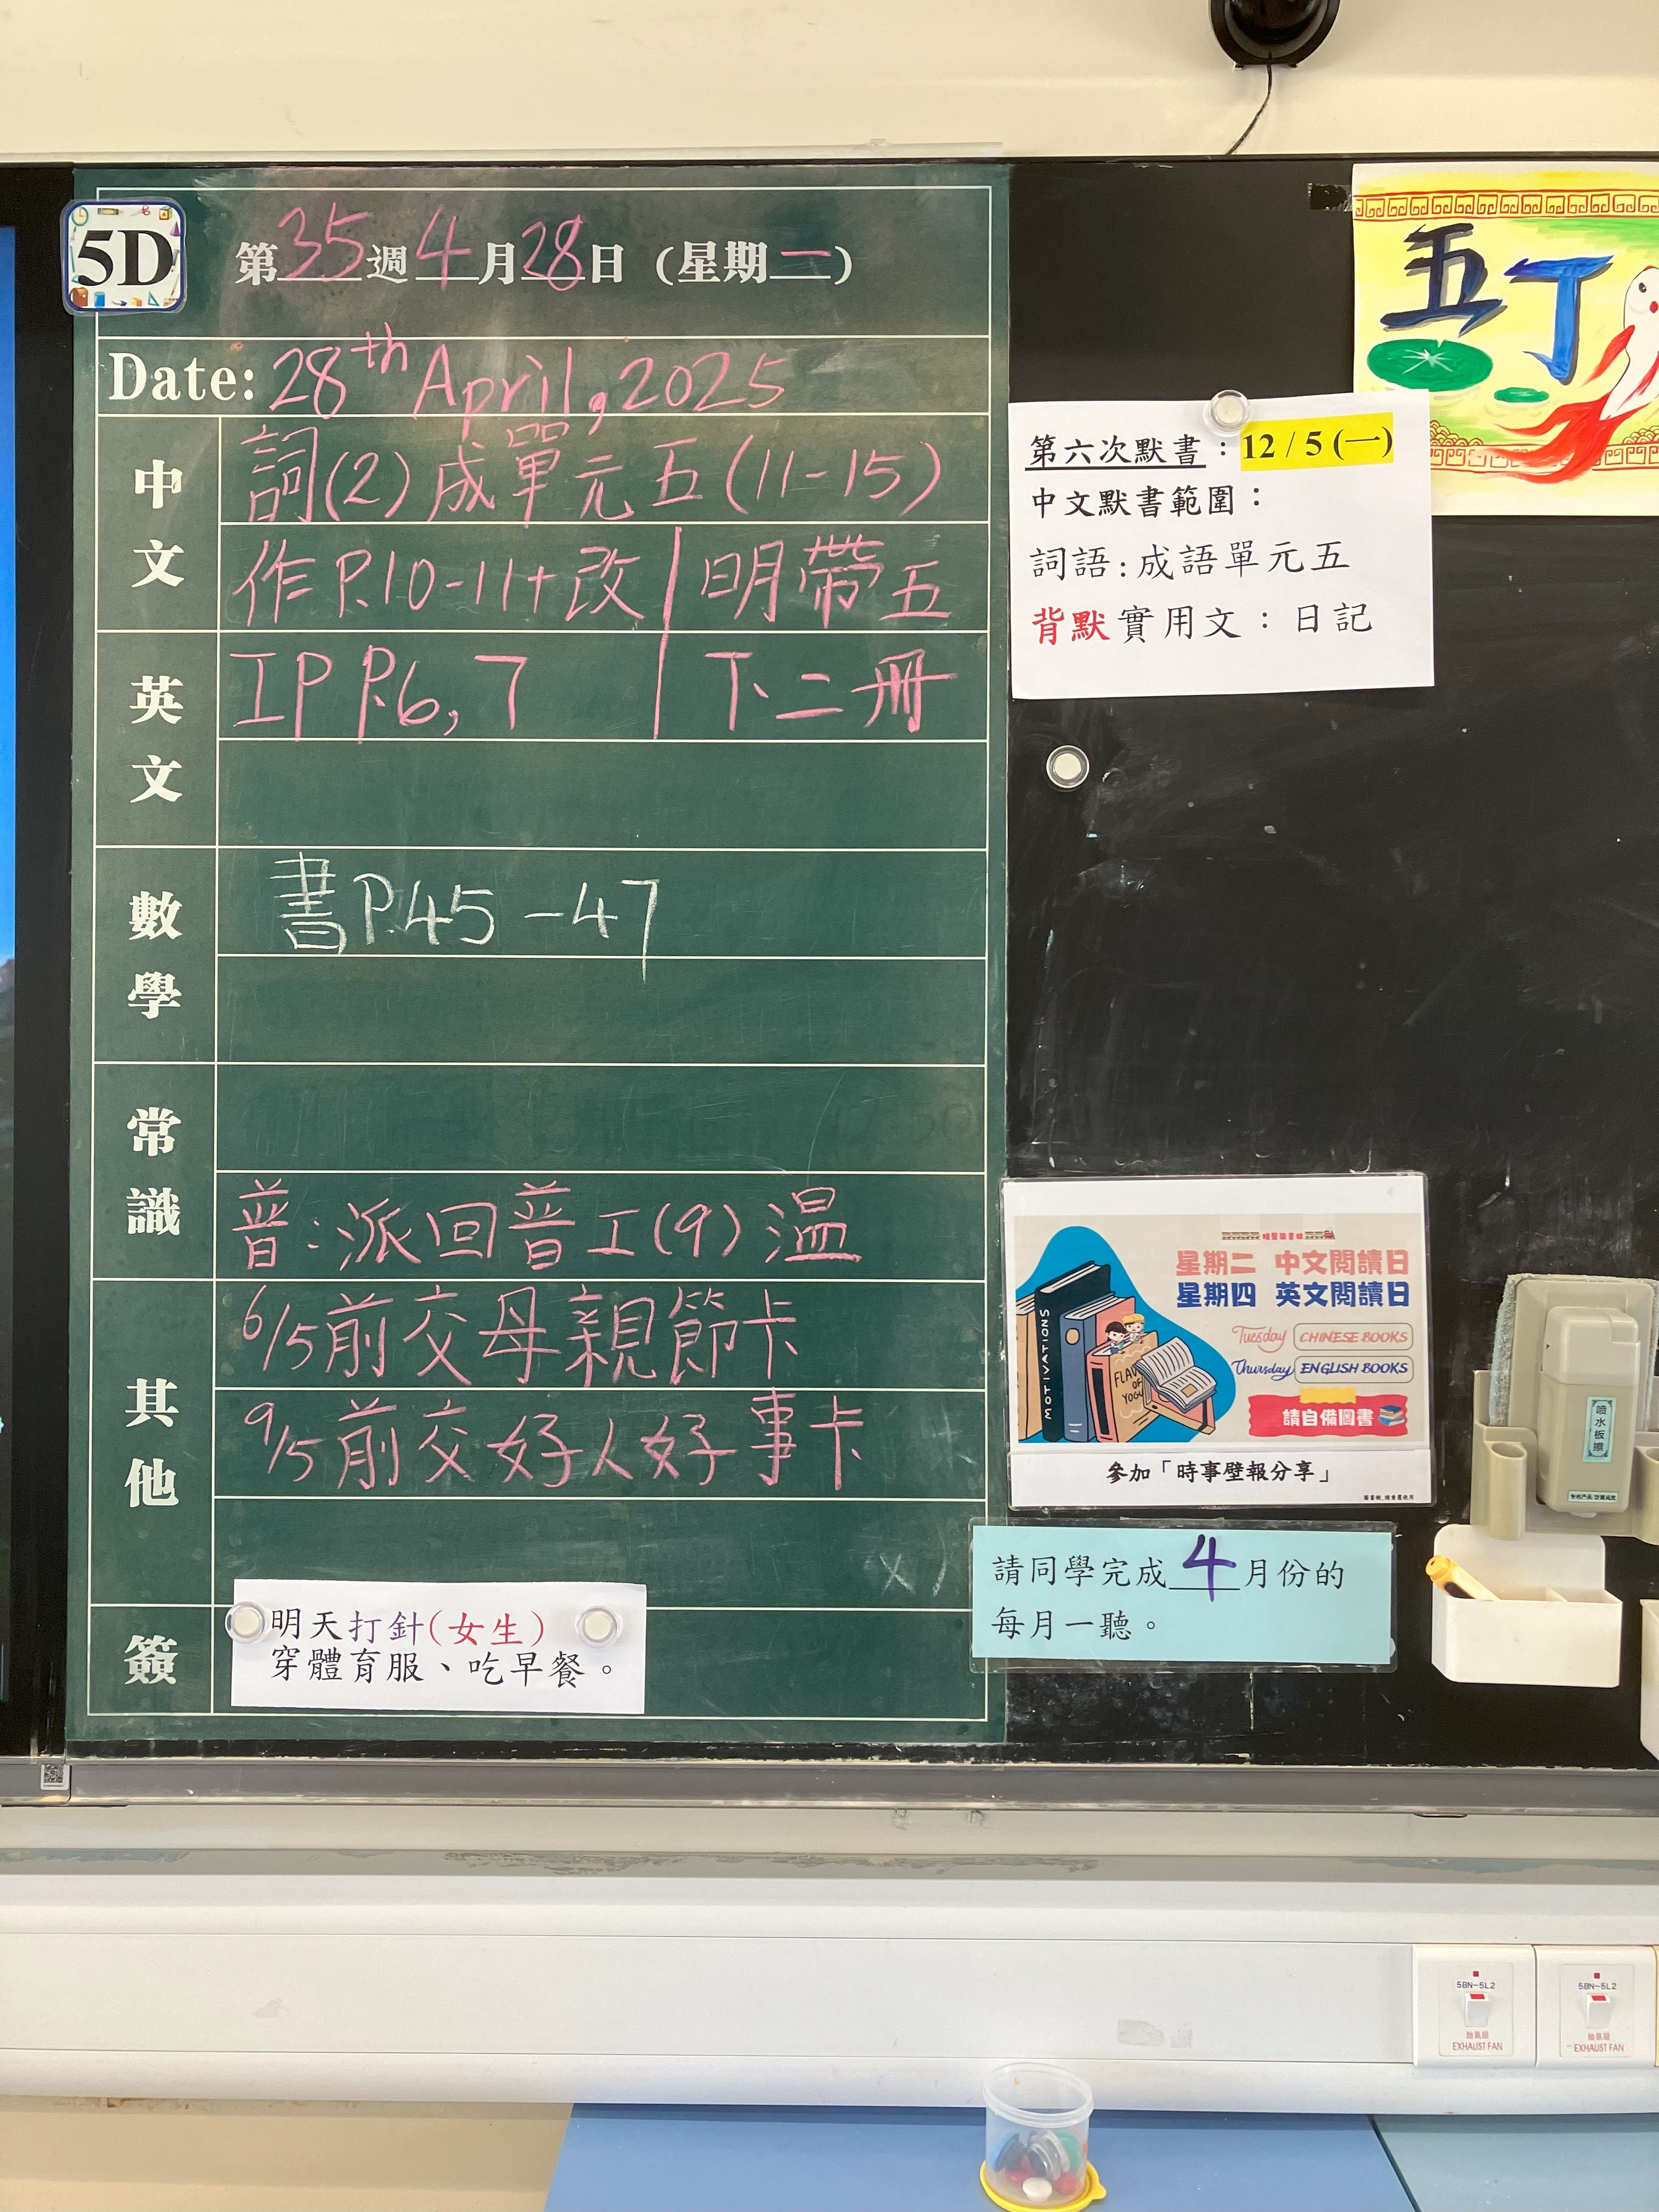 5D
第35週4月28日（星期一）
Date: 28th April, 2025
中文
詞(2)成單元五(11-15)
作P.10-11+改 | 明帶五
英文
IP P.6, 7 | 下二冊
數學
書P.45-47
常識
普：派回普工(9)溫
其他
6/5前交母親節卡
9/5前交好人好事卡
簽
明天打針(女生)
穿體育服、吃早餐。
五丁
第六次默書：12/5(一)
中文默書範圍：
詞語：成語單元五
背默實用文：日記
星期二 中文閱讀日
星期四 英文閱讀日
Tuesday CHINESE BOOKS
Thursday ENGLISH BOOKS
請自備圖書
MOTIVATIONS
參加「時事壁報分享」
請同學完成4月份的
每月一聽。
噴水板擦
5BN-5L2
抽氣扇
EXHAUST FAN
5BN-5L2
抽氣扇
EXHAUST FAN